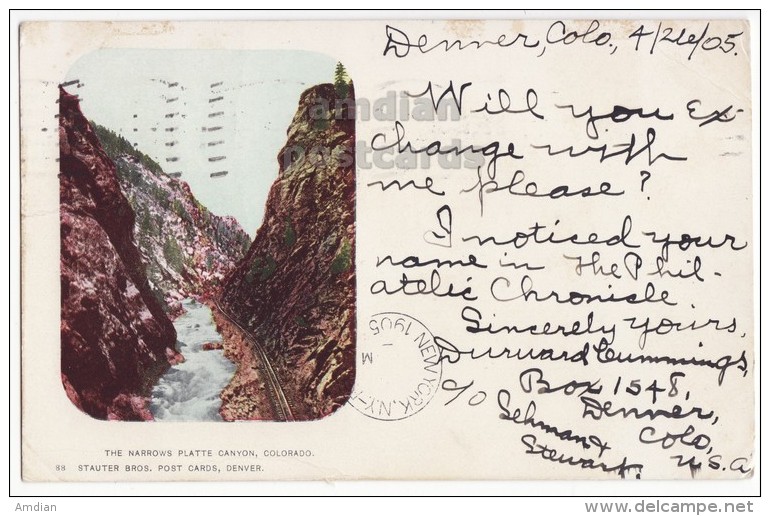 Denver, Colo., 4/26/05.
Will you ex-
change with
me please?
I noticed your
name in The Phil-
atelic Chronicle.
Sincerely yours,
Durward Cummings,
Box 1548,
Denver,
Colo,
U.S.A
c/o
Sehman &
Stewart.
NEW YORK, N.Y.
1905
M
THE NARROWS PLATTE CANYON, COLORADO.
88 STAUTER BROS. POST CARDS, DENVER.
amdian
postcards
Amdian
delcampe.net